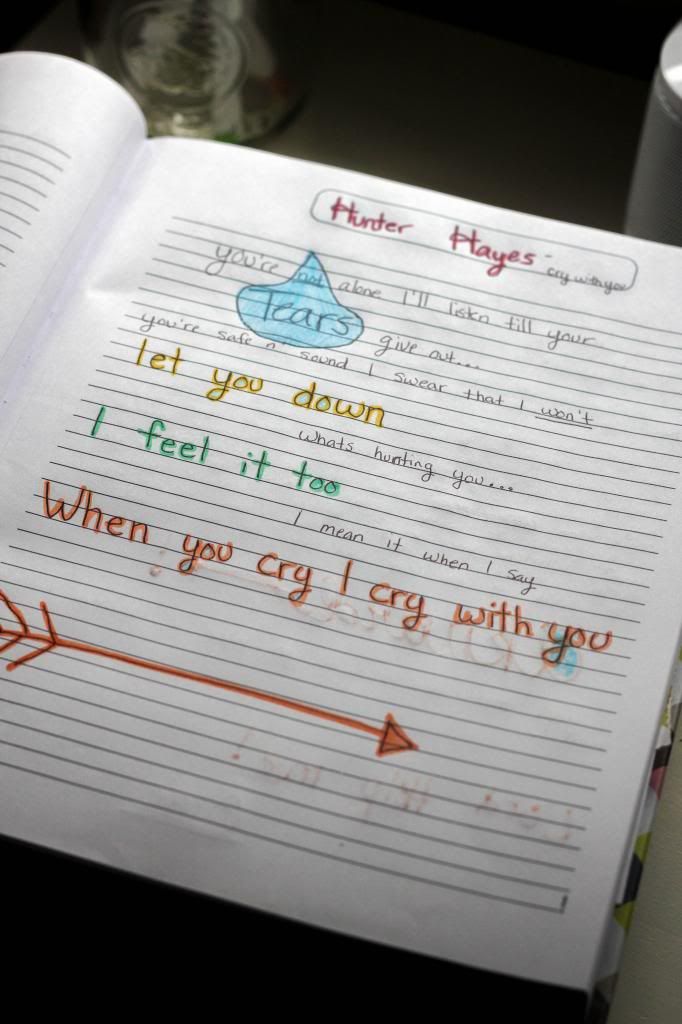 Hunter Hayes - cry with you
you're not alone I'll listen till your
Tears give out...
you're safe n' sound I swear that I won't
let you down
whats hurting you...
I feel it too
I mean it when I say
When you cry I cry with you